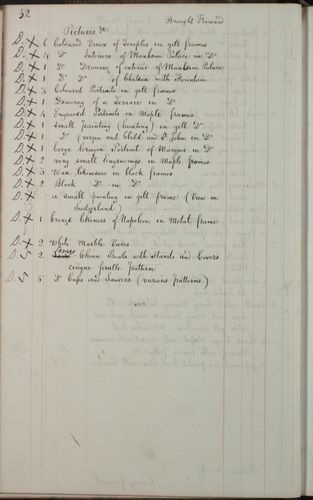 52
Brought Forward
Pictures &c
D. x 6 Coloured Views of Temples in gilt frames
D. x 4 Do Interiors of Manheim Palace in Do
D. x 1 Do Drawing of exterior of Manheim Palace
D. x 1 Do Do of Chateau with Fountain
D. x 3 Coloured Portraits in gilt frames
D. x 1 Drawing of a Terrace in Do
D. x 4 Engraved Portraits in Maple frames
D. x 1 small painting (hunting) in gilt Do
D. x 1 Do (virgin and Child and St John in Do
D. x 1 large Crayon Portrait of Marquis in Do
D. x 2 very small Engravings in Maple frames
D. x 3 Wax likenesses in black frames
D. x 2 Black Do in Do
D. x a small painting in gilt frame (View in
Switzerland)
D. x 1 bronze likeness of Napoleon in Metal frame
D. x 2 White Marble Vases
D. 5 2 China Bowls with Stands and Covers
cinque feuille Pattern
D. 5 5 Do Cups and Saucers (various Patterns)